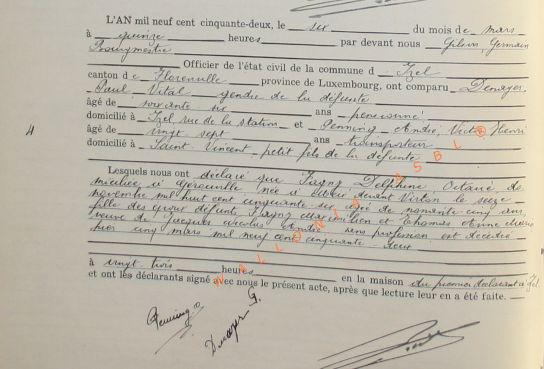 L'AN mil neuf cent cinquante-deux, le six du mois de mars
à quinze heures, par devant nous Gilson Germain
Bourgmestre
Officier de l'état civil de la commune d Izel
canton de Florenville province de Luxembourg, ont comparu
Paul Vital gendre de la défunte
âgé de soixante six ans pensionné
domicilié à Izel rue de la station et Penning André, Victor Henri
âgé de vingt sept ans transporteur
domicilié à Saint Vincent petit fils de la défunte
4
Lesquels nous ont déclaré que Fagny Delphine Octavie de
née à devant Virton le seize
novembre mil huit cent cinquante six âgée de nonante cinq ans
fille des époux défunts Fagny et Thomas Anne
veuve de Jacques Nicolas sans profession est décédée
hier cinq mars mil neuf cent cinquante deux
à vingt trois heures en la maison du premier déclarant à Izel
et ont les déclarants signé avec nous le présent acte, après que lecture leur en a été faite.
WALLONIA ASBL
Penning A